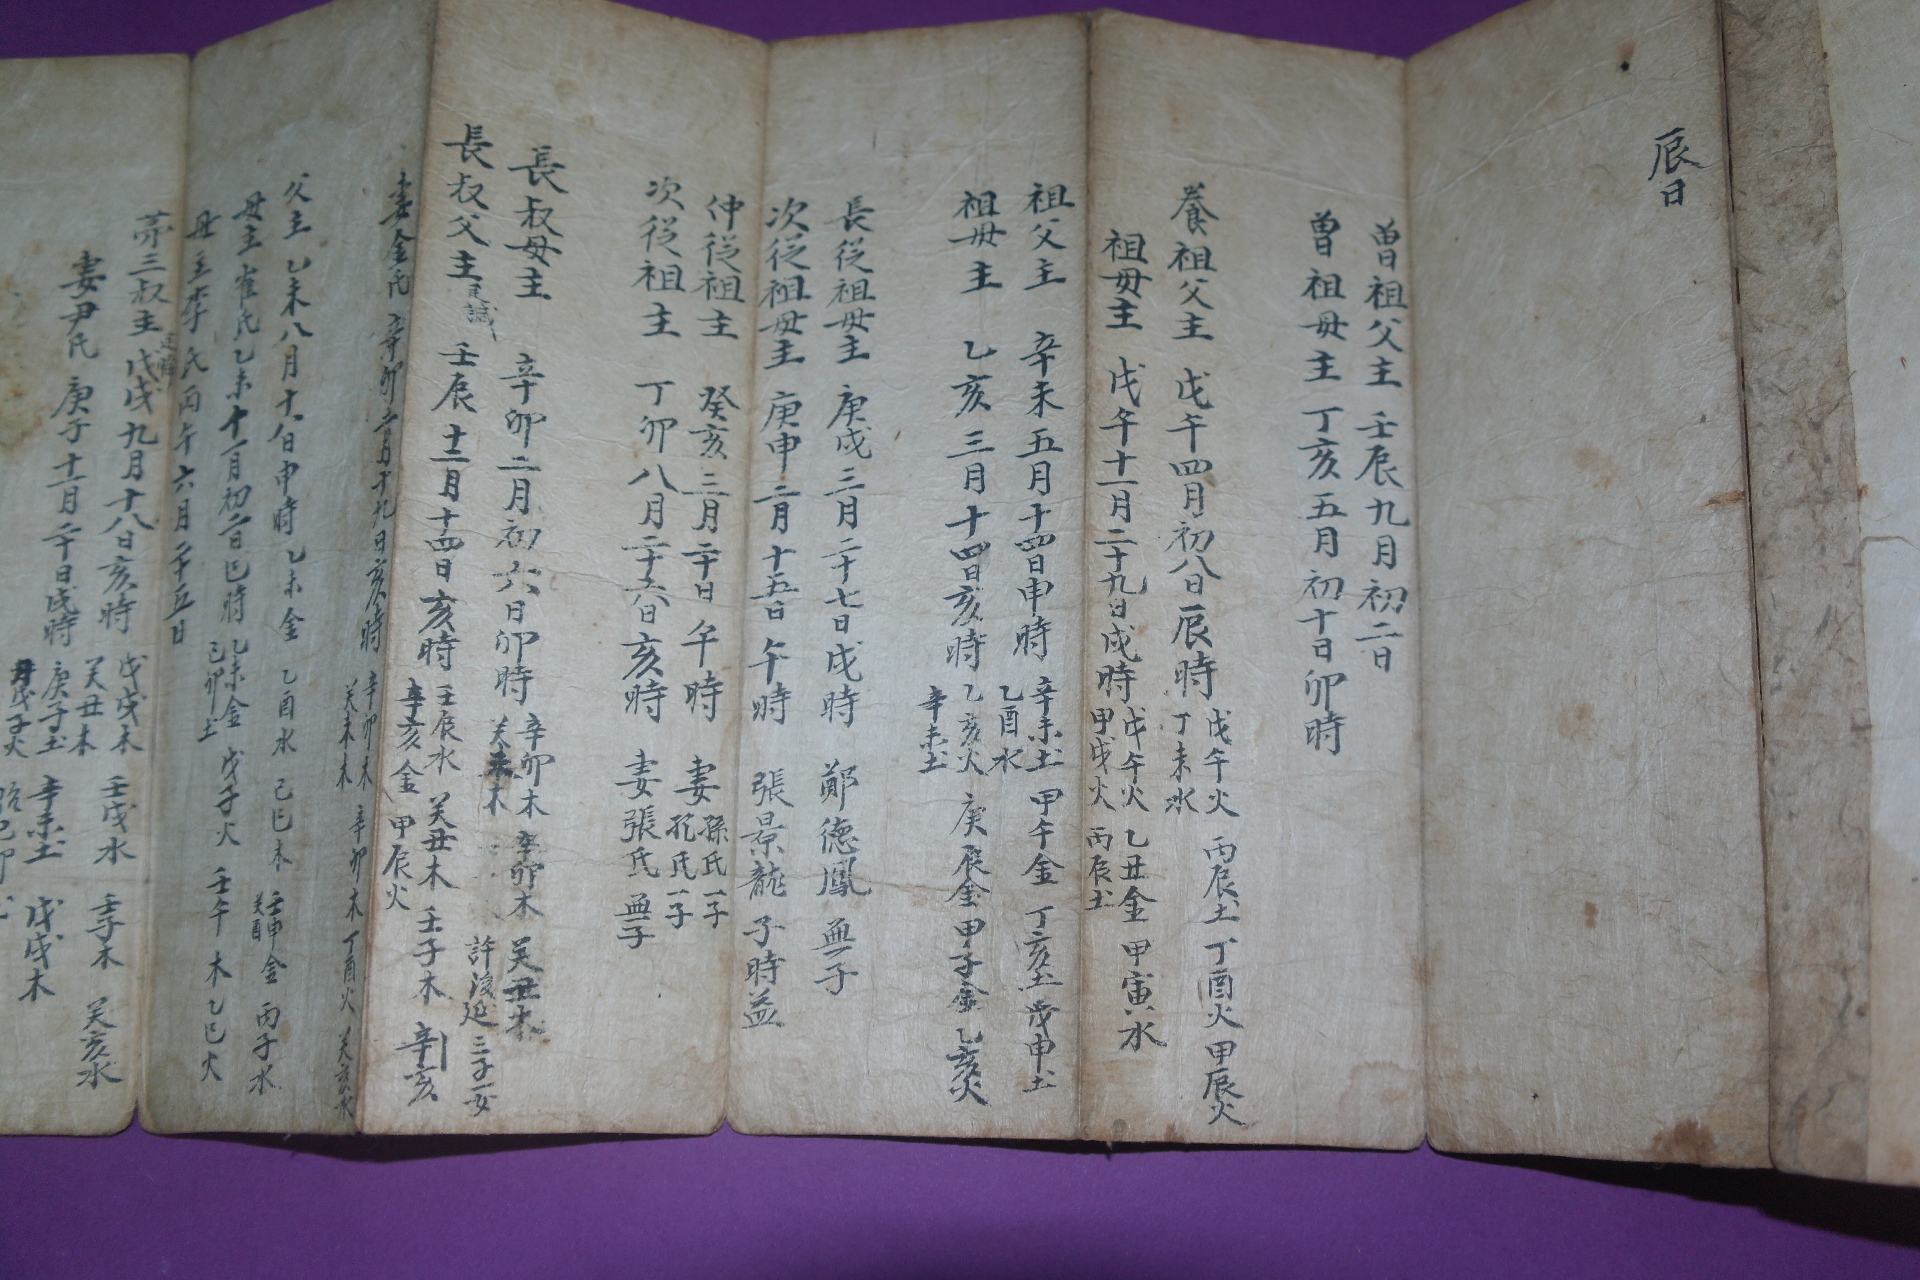 辰日
曾祖父主 壬辰九月初二日
曾祖母主 丁亥五月初十日卯時
養祖父主 戊午四月初八日辰時 戊午火 丁未水 丙辰土 丁酉火 甲辰火
祖母主 戊午十一月二十九日戌時 戊午火 甲戌火 乙丑金 丙辰土 甲寅水
祖父主 辛未五月十四日申時 辛未土 乙酉水 甲午金 丁亥土 戊申土
祖母主 乙亥三月十四日亥時 乙亥火 辛未土 庚辰金 甲子金 乙亥火
長從祖母主 庚戌三月二十七日戌時 鄭德鳳 無子
次從祖母主 庚申二月十五日午時 張景龍 子時益
仲從祖主 癸亥三月二十日午時 妻 孫氏一子 孔氏一子
次從祖主 丁卯八月二十六日亥時 妻張氏無子
長叔母主 辛卯二月初六日卯時 辛卯木 癸未木 辛卯木 癸丑木 許浚延 三子一女
長叔父主 壬辰十二月十四日亥時 壬辰水 辛亥金 癸丑木 甲辰火 壬子木 辛亥
妻金氏 辛卯二月十九日亥時 辛卯木 癸未木 辛卯木 丁酉火 癸亥水
父主 乙未八月十六日申時 乙未金 乙酉水 己巳木 壬申金 癸酉 丙子水
母主崔氏 乙未十一月初二日巳時 乙未金 己卯土 戊子火 壬午木 乙巳火
母主李氏 丙午六月二十五日
第三叔主 戊戌九月十八日亥時 戊戌木 癸丑木 壬戌水 壬子木 癸亥水
妻尹氏 庚子十二月二十日戌時 庚子土 戊子火 辛未土 戊戌木